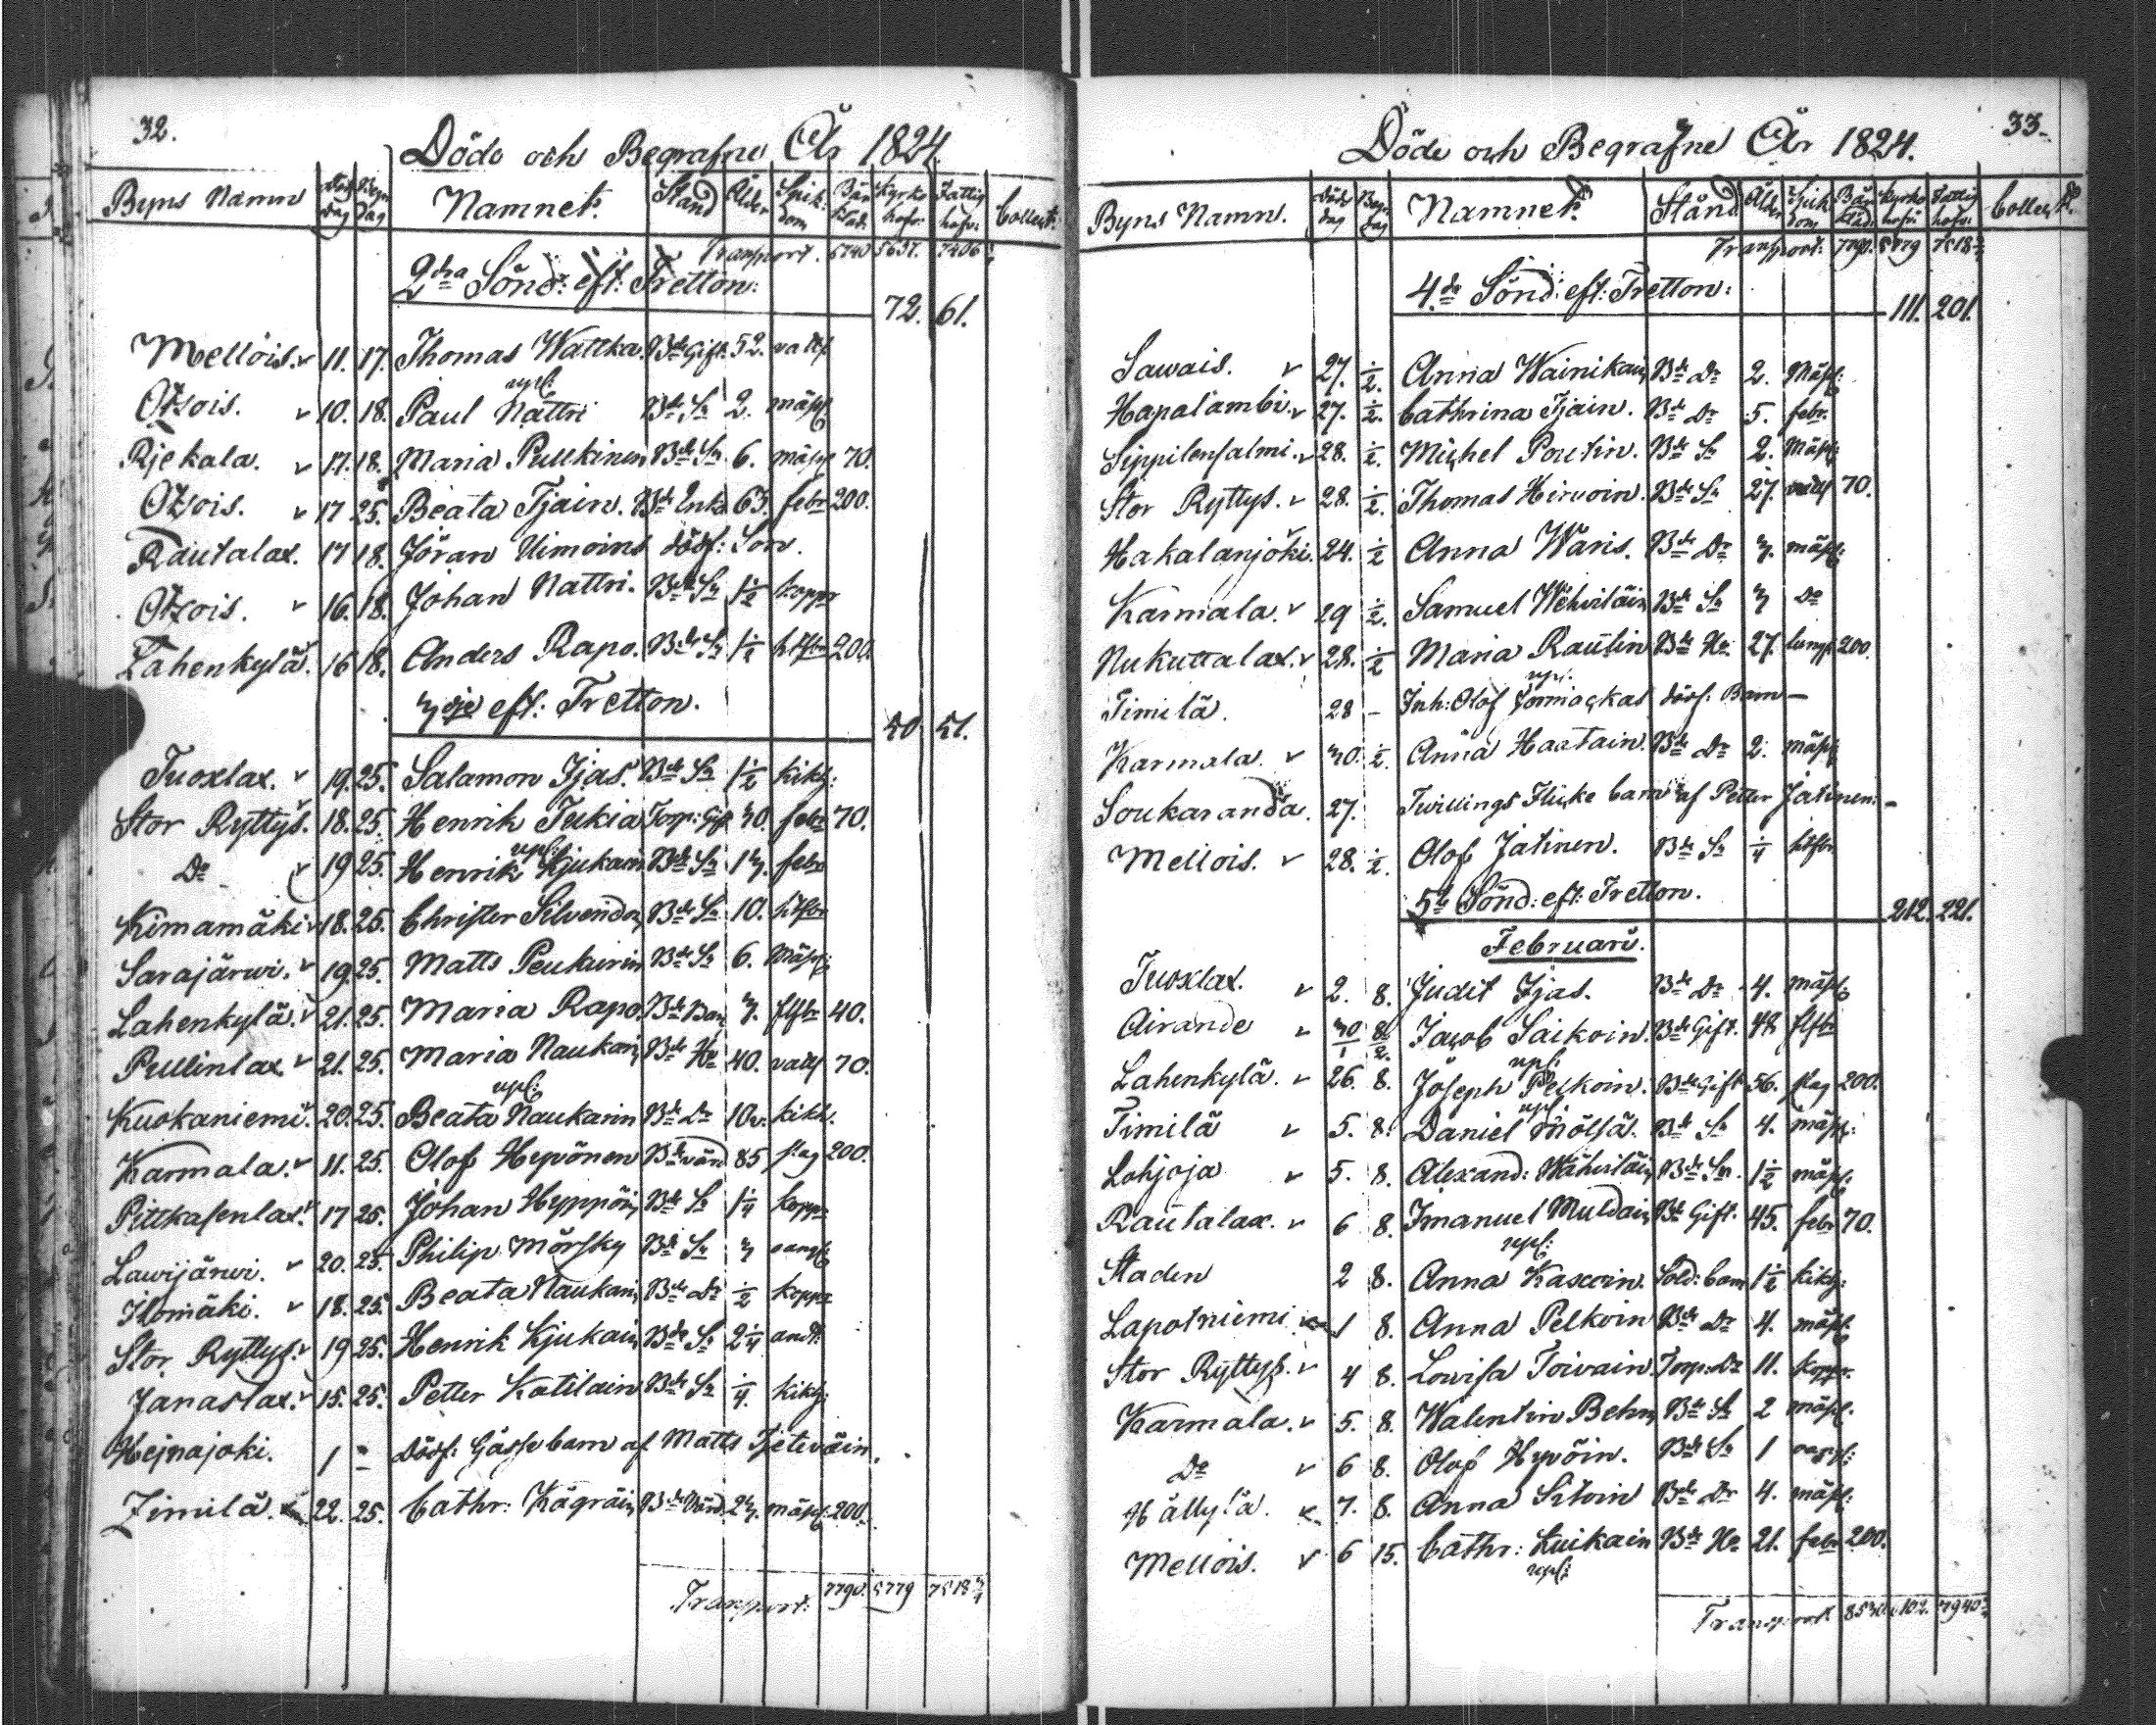 32.
Döde och Begrafne År 1824.
Byns Namn Död dag Begr Dag Namnet. Stånd Ålder Sjuk dom Bår kläd. Kyrko hofv: Fattig hofv: Collect:
Transport. 6740 5637. 7406
2dra Sönd: eft: Tretton: 72. 61.
Mellois. v 11. 17. Thomas Wattka. Bde Gift. 52.
Otsois. v 10. 18. Paul Nättri Bde Sn 2. mässl
Rjekala. v 17. 18. Maria Pullkinen Bde Sn 6. mässl 70.
Otsois. v 17 25. Beata Tjain. Bde Enk. 63. febr 200.
Rautalax. 17 18. Jöran Uimoins dödf: Son.
Otsois. v 16. 18. Johan Nattri. Bde Sn 1 1/2 koppr
Lahenkylä. 16 18. Anders Rapo. Bde Sn 1 1/2 htsfbr 200.
3dje eft: Tretton. 50 51.
Tuoxlax. v 19. 25. Salamon Ijas. Bde Sn 1 1/2 kikh:
Stor Ryttys. 18. 25. Henrik Tukia Torp: Gift 30. febr 70.
Do v 19 25. Henrik Kjukain Bde Sn 13. febr
Kimamäki v 18. 25. Christer Silvendoin Bde Sn 10. htsfbr
Sarajärwi. v 19 25 Matts Peukurin Bde Sn 6. Mässl:
Lahenkylä. v 21. 25. Maria Rapo. Bde Barn 3. flfbr 40.
Pullinlax v 21. 25. Maria Naukarin Bde Hu 40. 70.
Kuokaniemi v 20. 25. Beata Naukarin Bde Dr 10v. kikh.
Karmala. v 11. 25. Olof Hyvönen Bde 85 slag 200.
Pittkasenlax. v 17 25. Johan Hyppöin Bde Sn 1 1/4 koppr
Lawijärwi. v 20. 25. Philip Mörsky Bde Sn 3
Ilomäki. v 18. 25. Beata Naukarin Bde Dr 1/2 koppr
Stor Ryttys. v 19 25. Henrik Kjukain Bde Sn 2 1/4 andt:
Janaslax. v 15. 25. Petter Kotilain Bde Sn 1/4. kikh:
Hejnajoki. 1 - Dödf: Gosse barn af Matts Tjetväin.
Timilä. 22. 25. Cathr: Kägräin Bde 23. mässl: 200.
Transport: 7790. 5779 7518 3/4
33.
Döde och Begrafne År 1824.
Byns Namn. Död dag Begr. Dag Namnet. Stånd Ålder Sjuk dom Bår kläd. Kyrko hofv: Fattig hofv: Collect.
Transport: 7790. 5779 7518 3/4
4de Sönd: eft: Tretton: 111. 201.
Sawais. v 27. 1/2. Anna Wainikain Bde Dr 2. Mässl:
Hapalambi. v 27. 1/2. Cathrina Ijain. Bde Dr 5. febr.
Sippilensalmi. v 28. 1/2. Michel Poutin. Bde Sn 2. Mässl:
Stor Ryttys. v 28. 1/2. Thomas Hirvoin. Bde Sn 27. 70.
Hakalanjoki. 24. 1/2 Anna Waris. Bde Dr 3. mässl:
Karmala. v 29 1/2. Samuel Wehviläin Bde Sn 3 Do
Nukuttalax. v 28. 1/2 Maria Rautin Bde Hu. 27. lungs 200.
Timilä. 28 - Inh: Olof dödf. Barn -
Karmala. v 30. 1/2. Anna Haatain. Bde Dr 2. mässl
Soukaranda. 27. Twillings Flicke barn af Petter Jatinen. -
Mellois. v 28. 1/2. Olof Jatinen. Bde Sn 1/4 htsfbr
5te Sönd: eft: Tretton. 212. 221.
Februari.
Tuoxlax. v 2. 8. Judit Ijas. Bde Dr 4. mässl:
Airande v 30/1 8/2. Jacob Saikoin. Bde Gift. 48 flfbr
Lahenkylä. v 26. 8. Joseph Pelkoin. Bde Gift 56. slag 200.
Timilä v 5. 8. Daniel Mölsä. Bde Sn 4. mässl:
Lohjoja v 5. 8. Alexand: Wähviläin Bde Sn. 1 1/2 mässl:
Rautalax. v 6 8. Imanuel Muldain Bde Gift. 45. febr 70.
Staden 2 8. Anna Kascoin. Sold: barn 1 1/2 kikh:
Lapotniemi 1 8. Anna Pelkoin Bde Dr 4. mässl
Stor Ryttys. v 4 8. Lovisa Toivain Torp: Dr 11. koppr.
Karmala. v 5. 8. Walentin Behm Bde Sn 2 mässl.
Do v 6 8. Olof Hyvöin. Bde Sn 1
Hällylä. 7. 8. Anna Sitoin Bde Dr 4. mässl:
Mellois. v 6 15. Cathr: Kuikain Bde Hu 21. febr 200.
Transport 8530. 6102. 7940 3/4